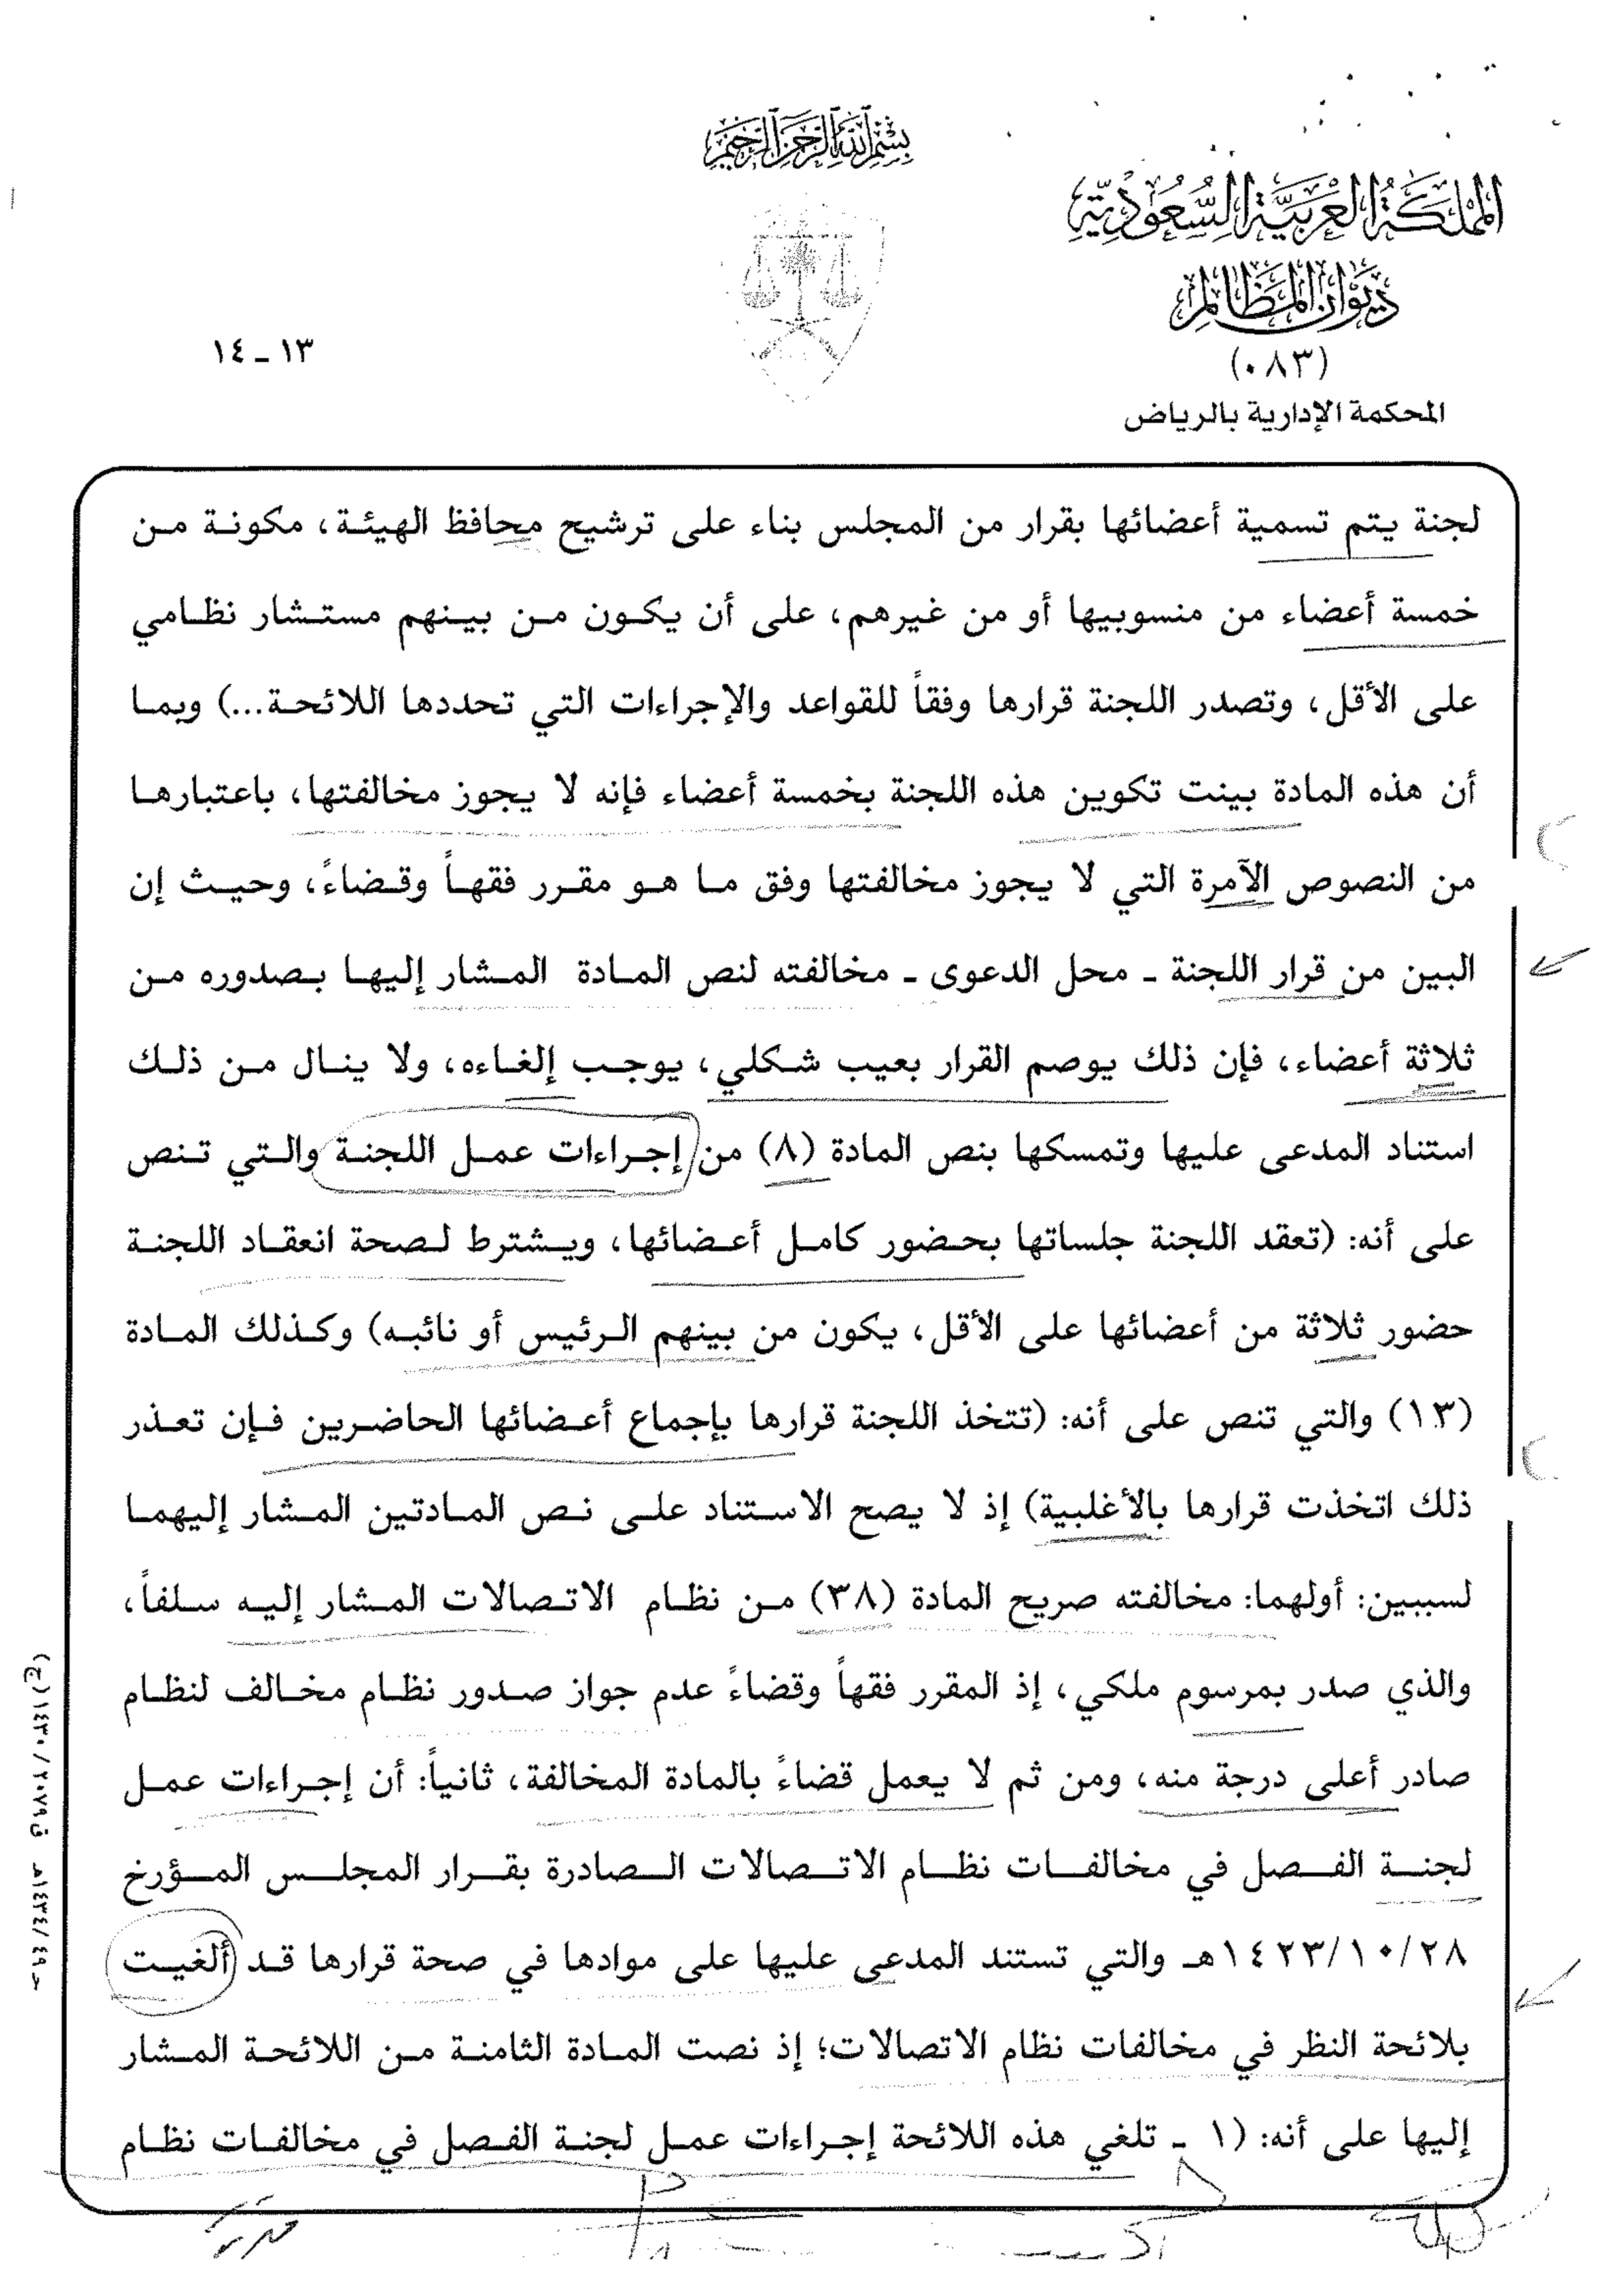 بسم الله الرحمن الرحيم
المملكة العربية السعودية
ديوان المظالم
(٠٨٣)
المحكمة الإدارية بالرياض
١٣ - ١٤
لجنة يتم تسمية أعضائها بقرار من المجلس بناء على ترشيح محافظ الهيئة، مكونة من
خمسة أعضاء من منسوبيها أو من غيرهم، على أن يكون من بينهم مستشار نظامي
على الأقل، وتصدر اللجنة قرارها وفقاً للقواعد والإجراءات التي تحددها اللائحة...) وبما
أن هذه المادة بينت تكوين هذه اللجنة بخمسة أعضاء فإنه لا يجوز مخالفتها، باعتبارها
من النصوص الآمرة التي لا يجوز مخالفتها وفق ما هو مقرر فقهاً وقضاءً، وحيث إن
البين من قرار اللجنة - محل الدعوى - مخالفته لنص المادة المشار إليها بصدوره من
ثلاثة أعضاء، فإن ذلك يوصم القرار بعيب شكلي، يوجب إلغاءه، ولا ينال من ذلك
استناد المدعى عليها وتمسكها بنص المادة (٨) من إجراءات عمل اللجنة والتي تنص
على أنه: (تعقد اللجنة جلساتها بحضور كامل أعضائها، ويشترط لصحة انعقاد اللجنة
حضور ثلاثة من أعضائها على الأقل، يكون من بينهم الرئيس أو نائبه) وكذلك المادة
(١٣) والتي تنص على أنه: (تتخذ اللجنة قرارها بإجماع أعضائها الحاضرين فإن تعذر
ذلك اتخذت قرارها بالأغلبية) إذ لا يصح الاستناد على نص المادتين المشار إليهما
لسببين: أولهما: مخالفته صريح المادة (٣٨) من نظام الاتصالات المشار إليه سلفاً،
والذي صدر بمرسوم ملكي، إذ المقرر فقهاً وقضاءً عدم جواز صدور نظام مخالف لنظام
صادر أعلى درجة منه، ومن ثم لا يعمل قضاءً بالمادة المخالفة، ثانياً: أن إجراءات عمل
لجنة الفصل في مخالفات نظام الاتصالات الصادرة بقرار المجلس المؤرخ
١٤٢٣/١٠/٢٨هـ والتي تستند المدعى عليها على موادها في صحة قرارها قد ألغيت
بلائحة النظر في مخالفات نظام الاتصالات؛ إذ نصت المادة الثامنة من اللائحة المشار
إليها على أنه: (١ - تلغي هذه اللائحة إجراءات عمل لجنة الفصل في مخالفات نظام